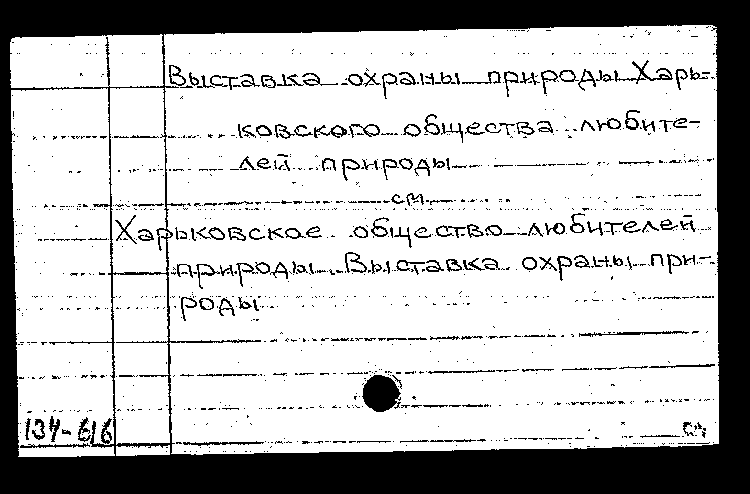 Выставка охраны природы Харь-
ковского общества любите-
лей природы
см
Харьковское общество любителей
природы. Выставка охраны при-
роды
134-616